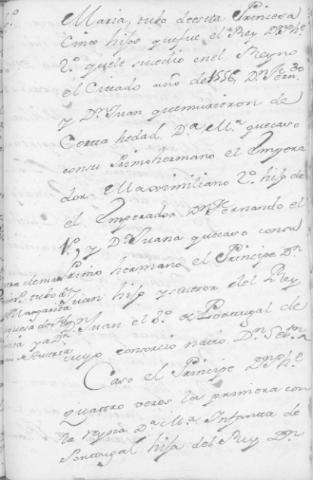 Maria, tubo de esta Princesa
Cinco hijos que fue el Rey Dn Phe
2º que le sucedio en el Reyno
el Citado año de 1556, Dn Fern.do
y Dn Juan que murieron de
Corta hedad Da Ma que caso
con su Primo hermano el Empera
dor Maximiliano 2º hijo de
el Emperador Dn Fernando el
1º, y Da Juana que caso con su
primo hermano el Principe Dn
Juan hijo y subsesor del Rey
Dn Juan el 3º de Portugal de
cuyo consorcio nacio Dn Sebn
Caso el Principe Dn Phe
quattro veces la primera con
la reyna Da Ma Infanta de
Portugal hija del Rey Dn
Margarita